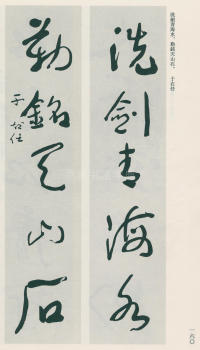 洗劍青海水，勒銘天山石。 于右任
洗劍青海水
勒銘天山石
于右任
一六〇